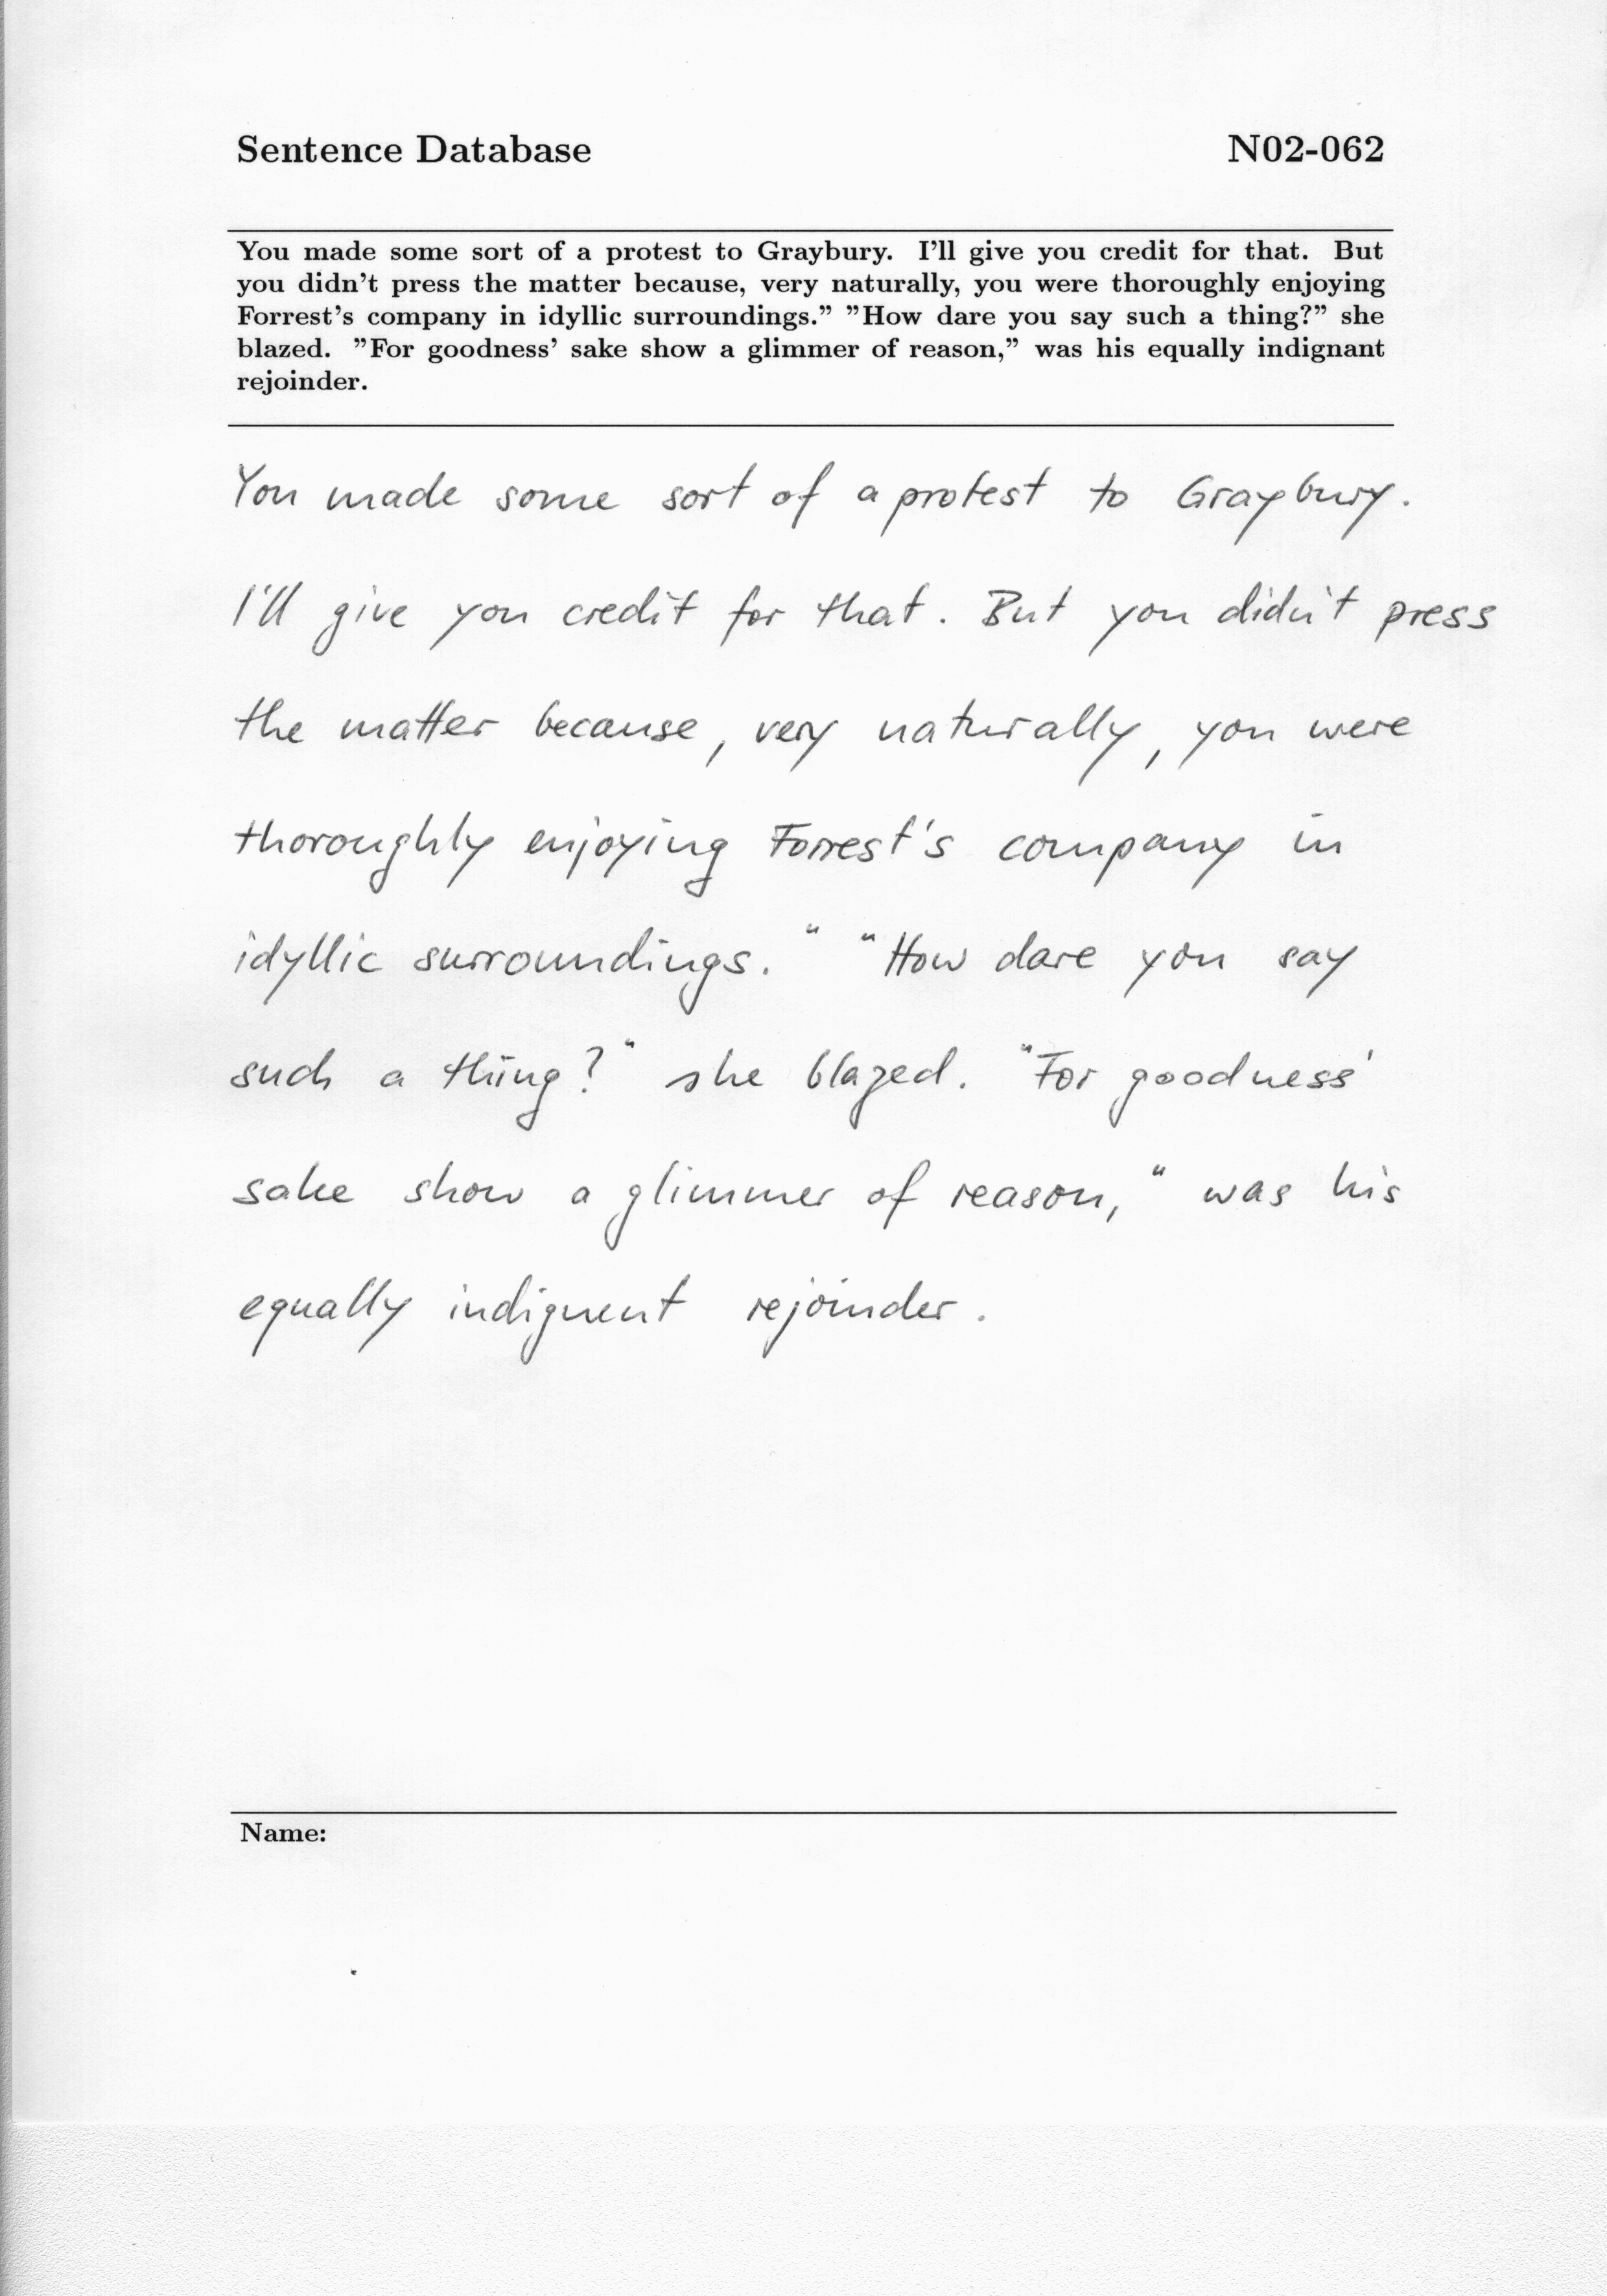 Sentence Database N02-062
You made some sort of a protest to Graybury. I'll give you credit for that. But
you didn't press the matter because, very naturally, you were thoroughly enjoying
Forrest's company in idyllic surroundings.” ”How dare you say such a thing?” she
blazed. ”For goodness' sake show a glimmer of reason,” was his equally indignant
rejoinder.
You made some sort of a protest to Graybury.
I'll give you credit for that. But you didn't press
the matter because, very naturally, you were
thoroughly enjoying Forrest's company in
idyllic surroundings. " "How dare you say
such a thing?" she blazed. "For goodness'
sake show a glimmer of reason," was his
equally indignent rejoinder.
Name: